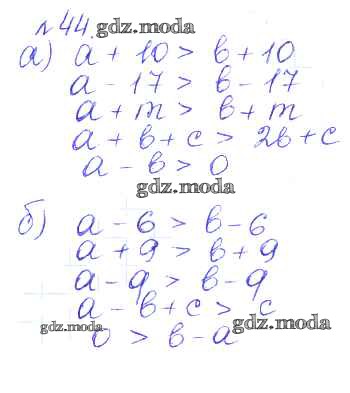 №44. gdz.moda
а) a + 10 > b + 10
a - 17 > b - 17
a + m > b + m
a + b + c > 2b + c
a - b > 0
gdz.moda
б) a - 6 > b - 6
a + 9 > b + 9
a - 9 > b - 9
a - b + c > c
gdz.moda 0 > b - a gdz.moda